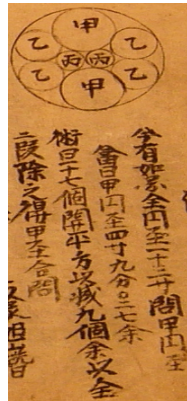 甲
乙 乙
丙 丙
乙 乙
甲
今有如図全円至一十二寸問甲円至
答曰甲円至四寸九分〇二七余
術曰十七個開平方以減九個余以全
二段除之得甲至合問